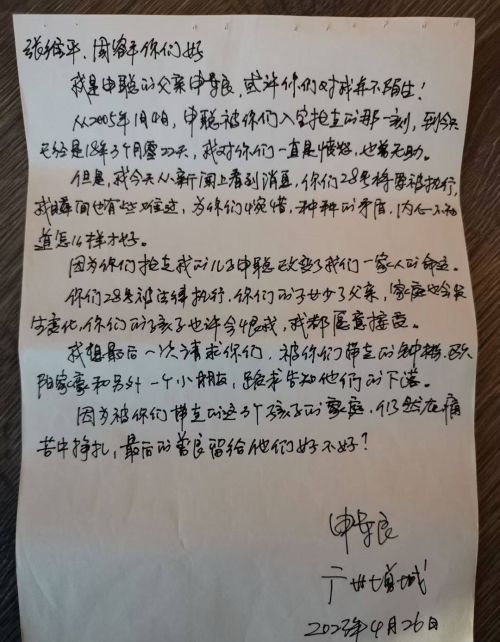 张维平、周容平你们好
我是申聪的父亲申军良,或许你们对我并不陌生!
从2005年1月4日,申聪被你们入室抢走的那一刻,到今天
已经是18年3个月零22天,我对你们一直是愤怒,也曾无助。
但是,我今天从新闻上看到消息,你们28号将要被执行,
我瞬间也有些难过,为你们惋惜,种种的矛盾,内心不知
道怎么样才好。
因为你们抢走我的儿子申聪改变了我们一家人的命运。
你们28号被法律执行,你们的子女少了父亲,家庭也会发
生变化,你们的孩子也许会恨我,我都愿意接受。
我想最后一次请求你们,被你们带走的钟彬、欧
阳家豪和另外一个小朋友,跪求告知他们的下落。
因为被你们带走的这3个孩子的家庭,仍然在痛
苦中挣扎,最后的善良留给他们好不好?
申军良
广州增城
2023年4月26日